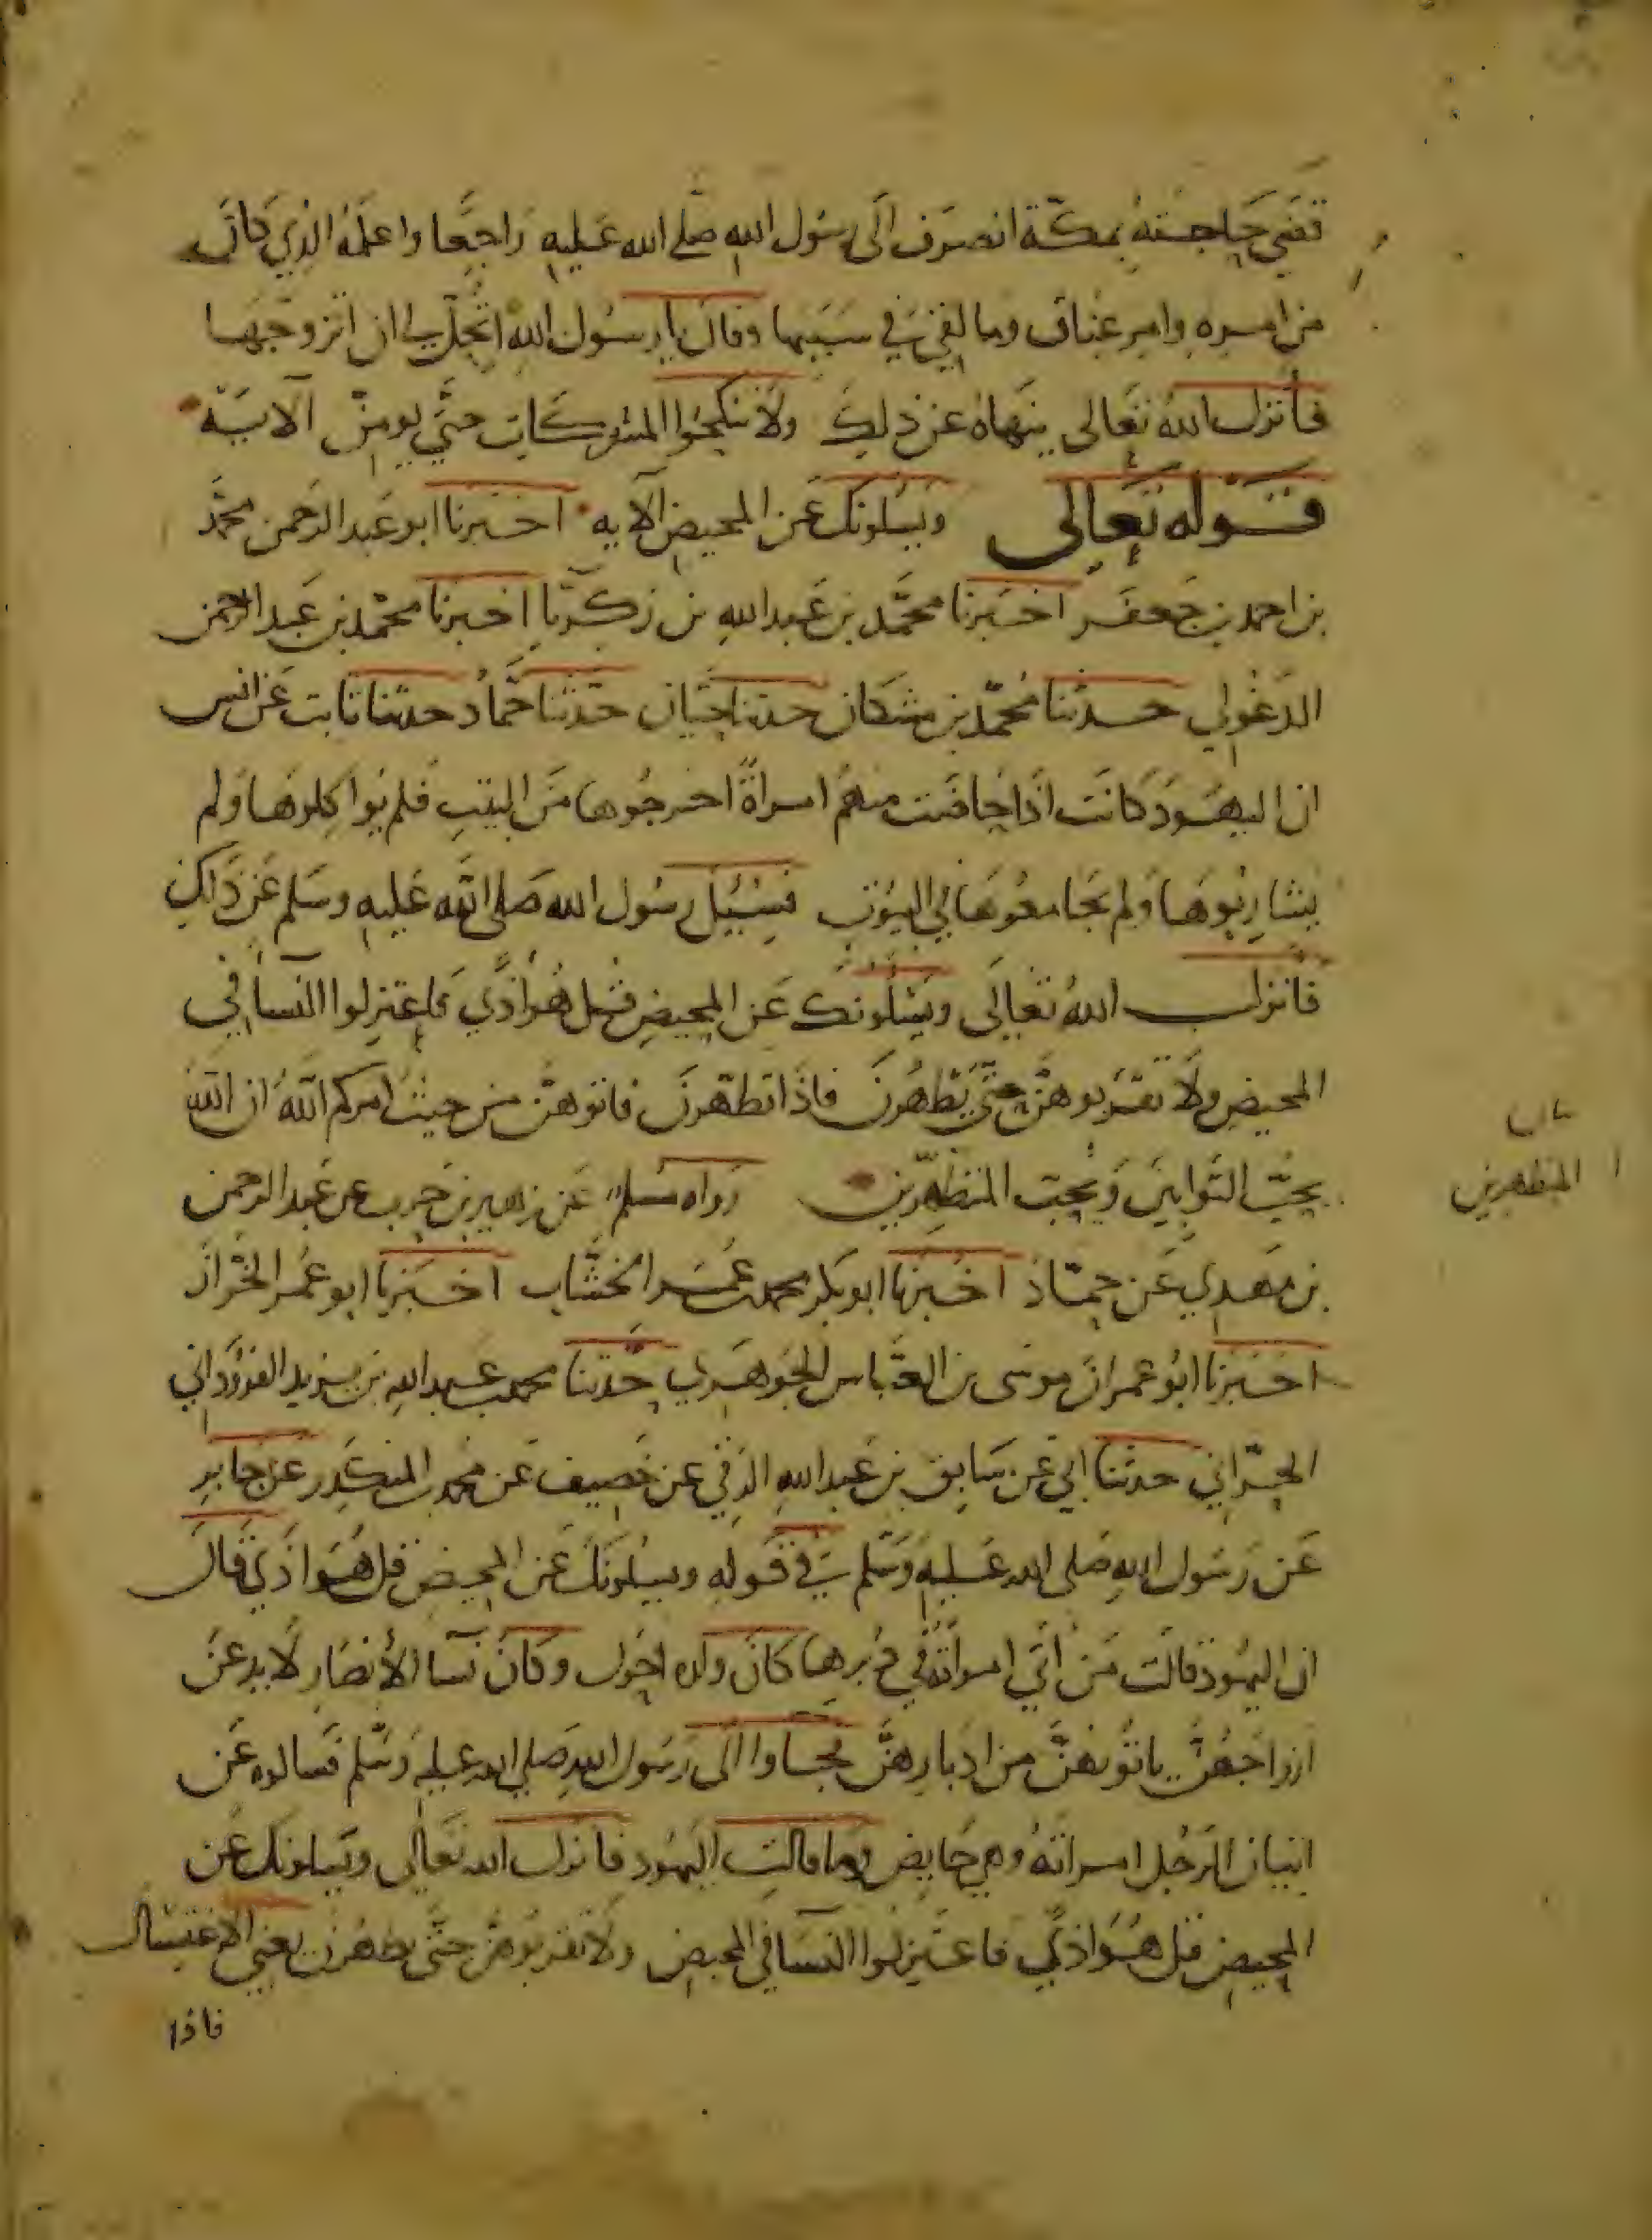 قضي حاجته بمكة انصرف الى رسول الله صلى الله عليه راجعا واعلمه الذي كان
من امره وامر عناق وما لقي في سببها وقال يا رسول الله اتحل لي ان اتزوجها
فأنزل الله تعالى ينهاه عن ذلك ولا تنكحوا المشركات حتى يومن الآية
قوله تعالى ويسلونك عن المحيض الآيه اخبرنا ابو عبد الرحمن محمد
بن احمد بن جعفر اخبرنا محمد بن عبد الله بن زكريا اخبرنا محمد بن عبد الرحمن
الدغولي حدثنا محمد بن مشكان حدثنا حيان حدثنا حماد حدثنا ثابت عن انس
ان اليهود كانت اذا حاضت منهم امراة اخرجوها من البيت فلم يواكلوها ولم
يشاربوها ولم يجامعوها في البيوت فسئيل رسول الله صلى الله عليه وسلم عن ذلك
فانزل الله تعالى ويسلونك عن المحيض قل هو اذى فاعتزلوا النسا في
المحيض ولا تقربوهن حتى يطهرن فاذا تطهرن فاتوهن من حيث امركم الله ان الله
يحب التوابين ويحب المتطهرين رواه مسلم عن زهير بن حرب عن عبد الرحمن
بن مهدي عن حماد اخبرنا ابو بكر محمد بن عمر الخشاب اخبرنا ابو عمر الخزاز
اخبرنا ابو عمران موسى بن العباس الجوهري حدثنا محمد بن عبيد الله بن يزيد القردواني
الحراني حدثنا ابي عن سابق بن عبد الله الرقي عن خصيف عن محمد بن المنكدر عن جابر
عن رسول الله صلى الله عليه وسلم في قوله ويسلونك عن المحيض قل هو اذي قال
ان اليهود قالت من اتي امراته في دبرها كان ولده احول وكان نسا الأنصار لا يدعن
ازواجهن ياتونهن من ادبارهن فجاوا الى رسول الله صلى الله عليه وسلم فسالوه عن
اتيان الرجل امراته وهي حايض وما قالت اليهود فانزل الله تعالى ويسلونك عن
المحيض قل هو اذي فاعتزلوا النسا في المحيض ولا تقربوهن حتى يطهرن يعني الاغتسال
فاذا
المتطهرين